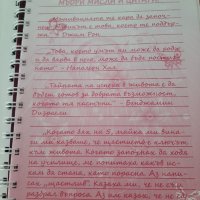 МЪДРИ МИСЛИ И ЦИТАТИ
„Мотивацията те кара да започ-
неш. Навикът е това, което те поддър-
жа." Джим Рон
„Това, което умът ти може да роди
и да вярва в него, може да бъде постиг-
нато." - Наполеон Хил
„Тайната на успеха в живота е да
бъдеш готов за добрата възможност,
когато тя настъпи" - Бенджамин
Дизраели
„Когато бях на 5, майка ми вина-
ги ми казваше, че щастието е ключът
към живота. Когато започнах да ходя
на училище, ме попитаха какъв ис-
кам да стана, като порасна. Аз напи-
сах „щастлив". Казаха ми, че не съм
разбрал въпроса. Аз им казах, че не